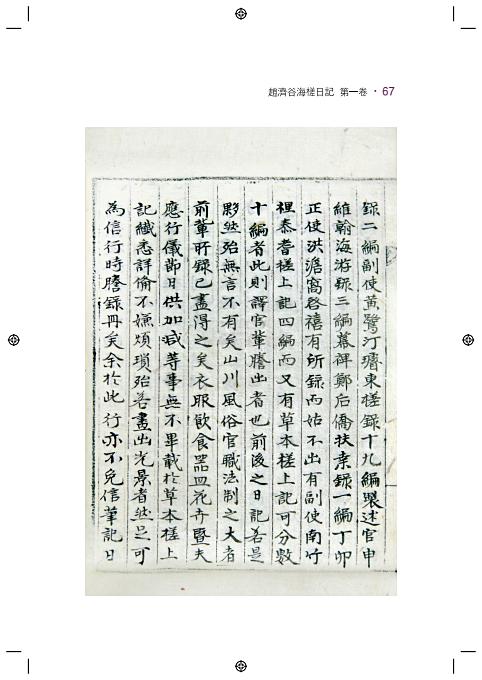 趙濟谷海槎日記 第一卷 · 67
錄二編副使黃鷺汀璿東槎錄十九編製述官申
維翰海游錄三編幕裨鄭后僑扶桑錄一編丁卯
正使洪澹窩啓禧有所錄而姑不出有副使南竹
裡泰耆槎上記四編而又有草本槎上記可分數
十編者此則譯官輩謄出者也前後之日記若是
夥然殆無言不有矣山川風俗官職法制之大者
前輩所錄已盡得之矣衣服飮食器皿花卉曁夫
應行儀節日供加减等事無不畢載於草本槎上
記纖悉詳備不嫌煩瑣殆若畫出光景者然足可
為信行時謄錄冊矣余於此行亦不免信筆記日